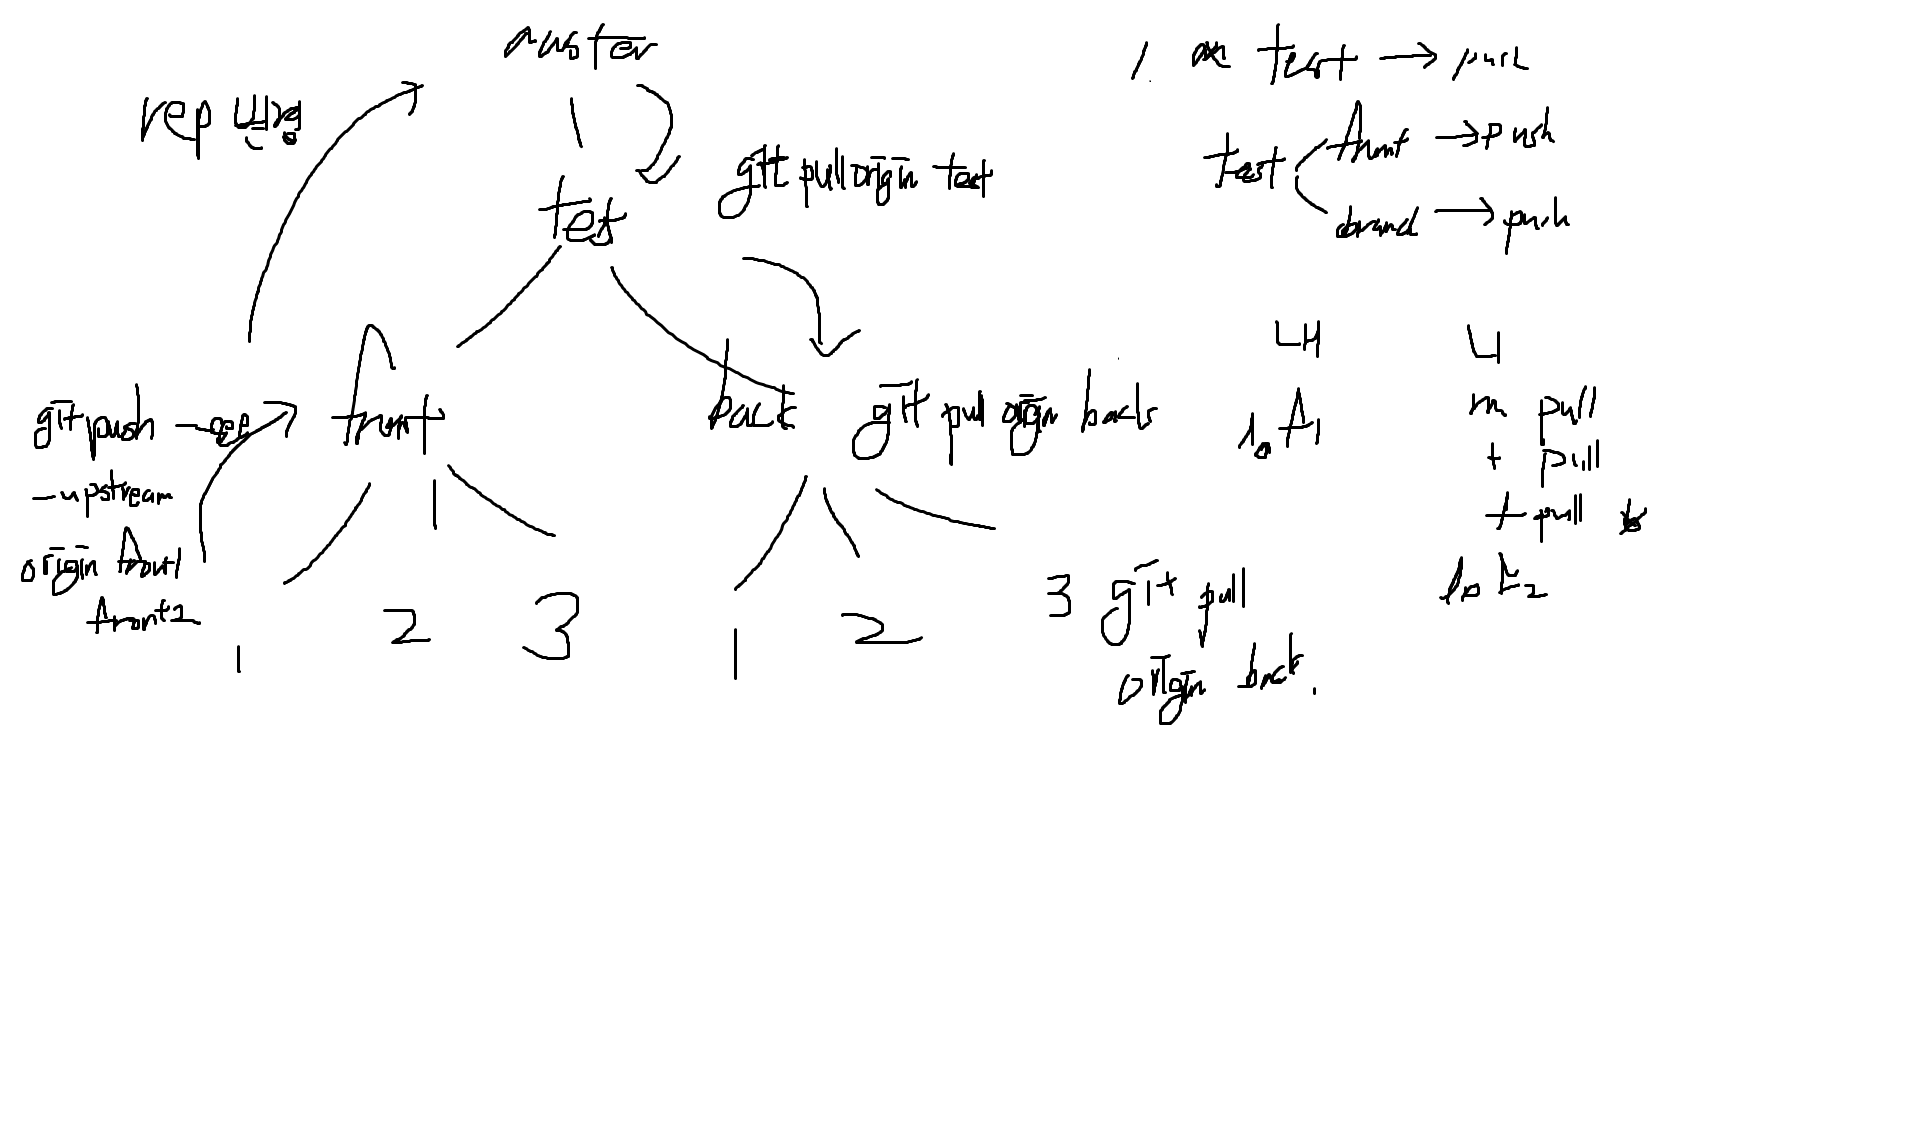 master
rep 변경
git pull origin test
tes
front
back
git pull origin back
git push
-upstream
origin front1
front1
1
2
3
1
2
3 git pull
origin back.
1. test → push
test
front → push
→ push
너
m pull
+ pull
+ pull